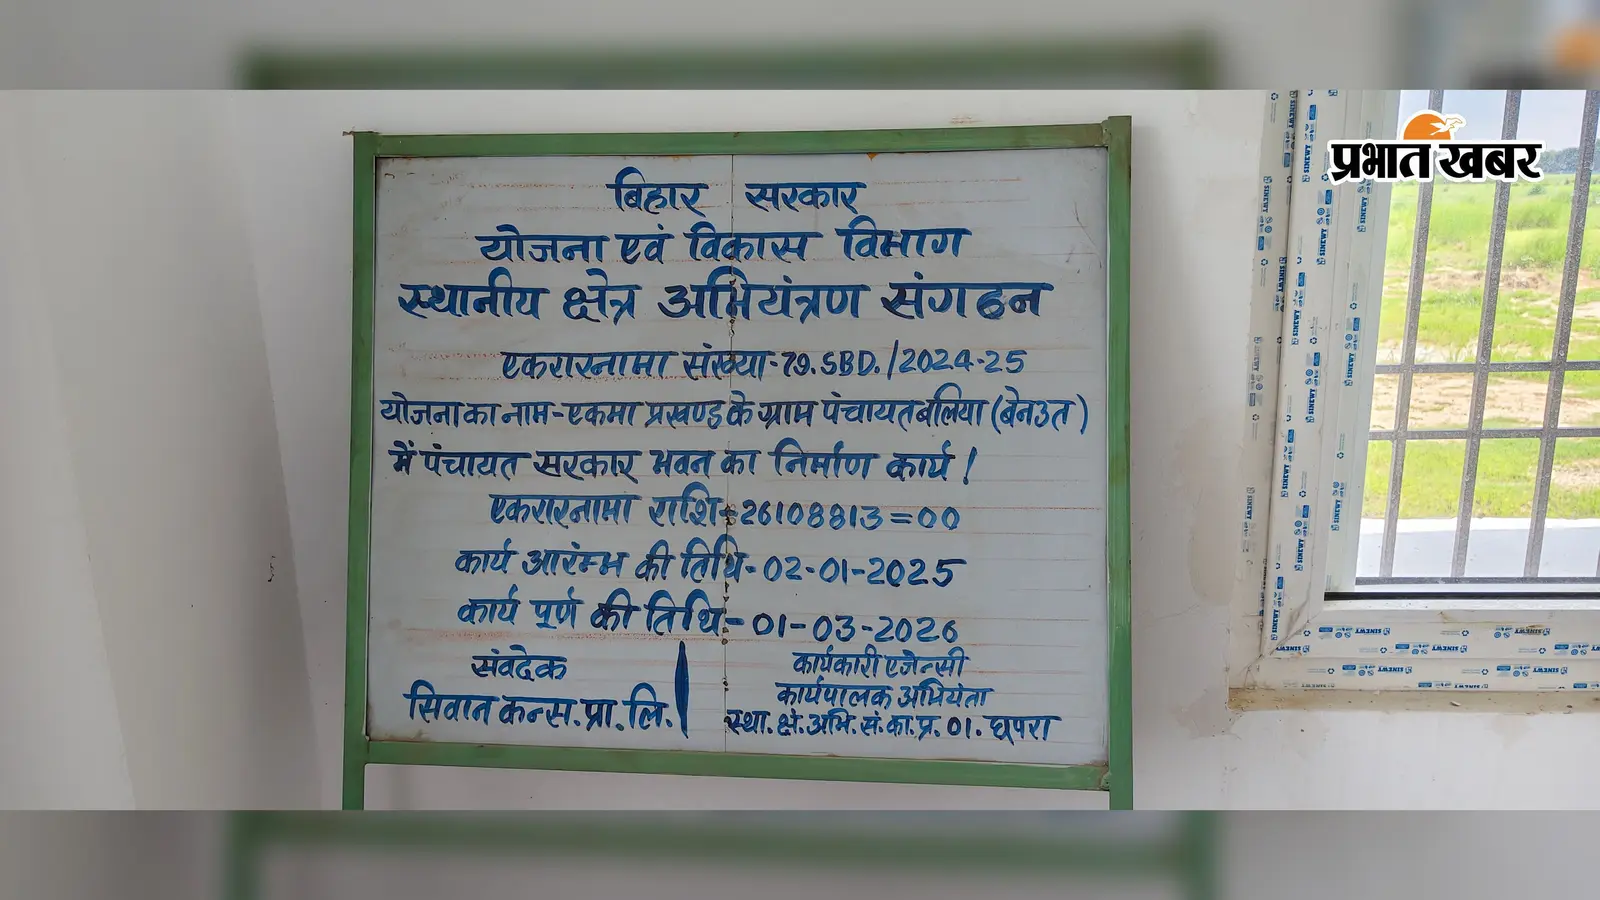 बिहार सरकार
योजना एवं विकास विभाग
स्थानीय क्षेत्र अभियंत्रण संगठन
एकरारनामा संख्या-79.SBD./2024-25
योजना का नाम-एकमा प्रखण्ड के ग्राम पंचायत बलिया (बेनउत)
में पंचायत सरकार भवन का निर्माण कार्य!
एकरारनामा राशि-26108813=00
कार्य आरंम्भ की तिथि-02-01-2025
कार्य पूर्ण की तिथि-01-03-2026
संवदेक
सिवान कन्स.प्रा.लि.
कार्यकारी एजेन्सी
कार्यपालक अभियंता
स्था.क्षे.अभि.सं.का.प्र.01.छपरा
प्रभात खबर
SINEWY